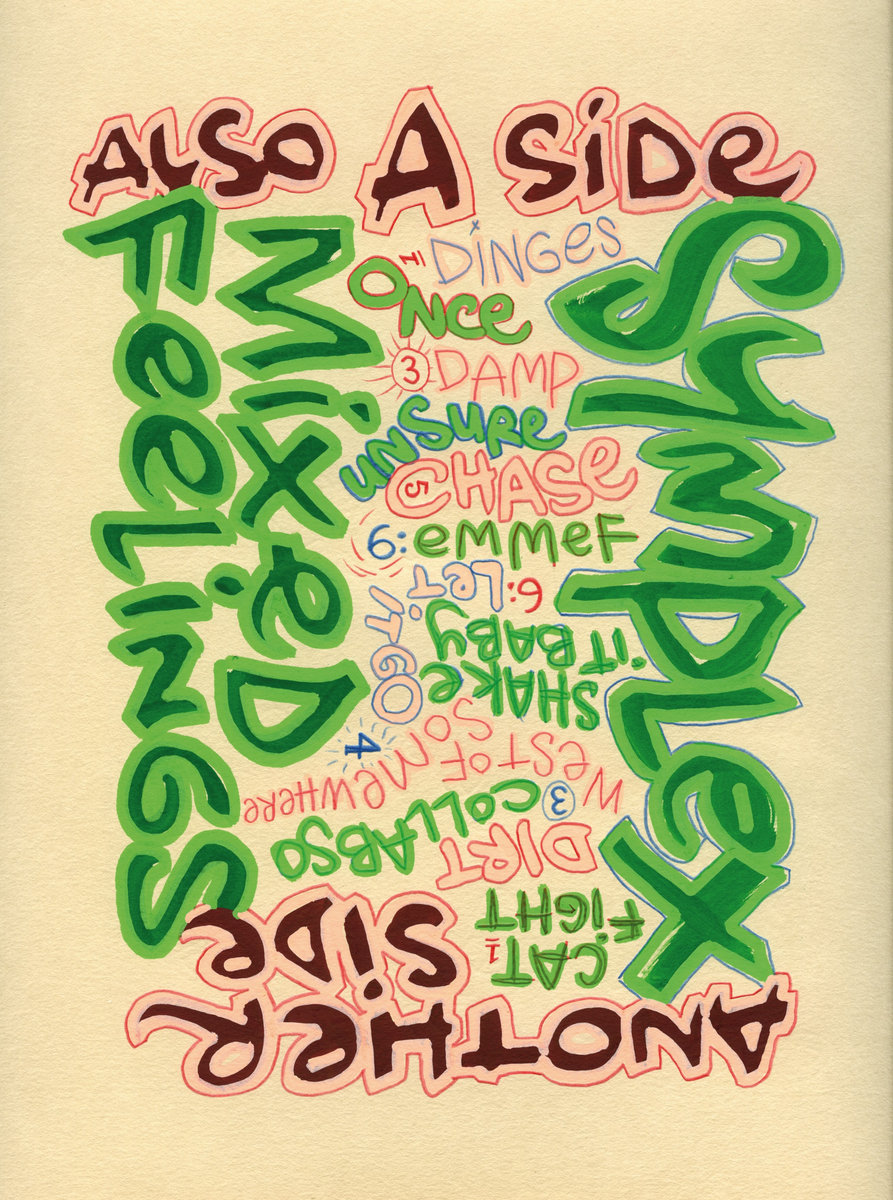 ALSO A SiDe
Mixed
FeeLiNGS
SympLex
1 DiNGeS
ONce
3 DAMP
UNSURe
5 CHASe
6: emmeF
ANOTHeR
SiDe
1 CAT
FiGHT
DiRT
3 COLLABSO
WeST OF
SOMeWHeRe
4
SHAKe
iT BABY
6: LeT
iT GO